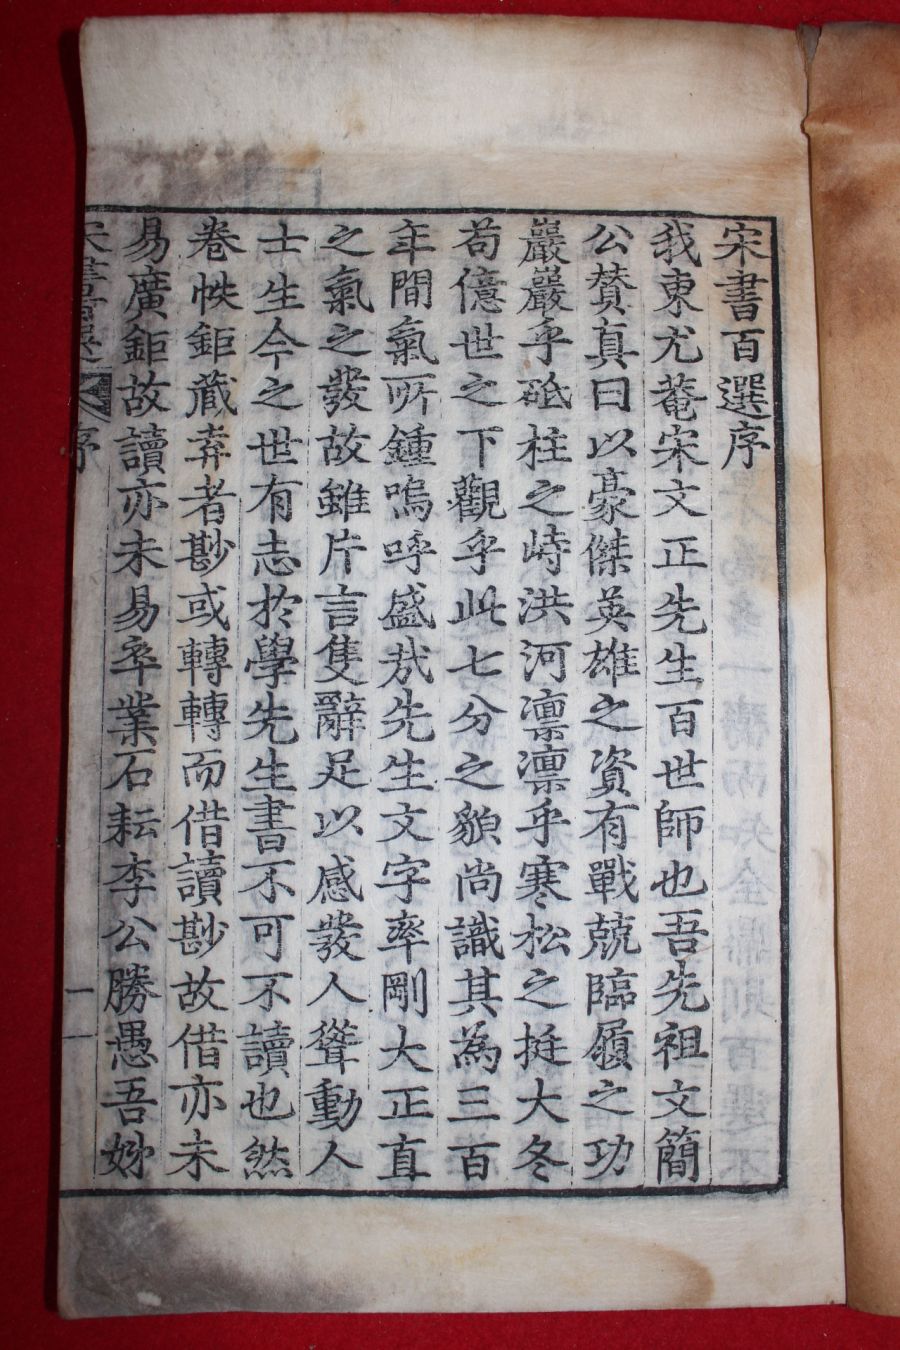 宋書百選序
我東尤菴宋文正先生百世師也吾先祖文簡
公賛真曰以豪傑英雄之資有戰兢臨履之功
巖巖乎砥柱之峙洪河凛凛乎寒松之挺大冬
苟億世之下觀乎此七分之貌尚識其為三百
年間氣所鍾嗚呼盛㢤先生文字率剛大正直
之氣之發故雖片言隻辭足以感發人聳動人
士生今之世有志於學先生書不可不讀也然
卷帙鉅蔵弆者尠或轉轉而借讀尠故借亦未
易廣鉅故讀亦未易卒業石耘李公勝愚吾妙
宋書百選 序 一